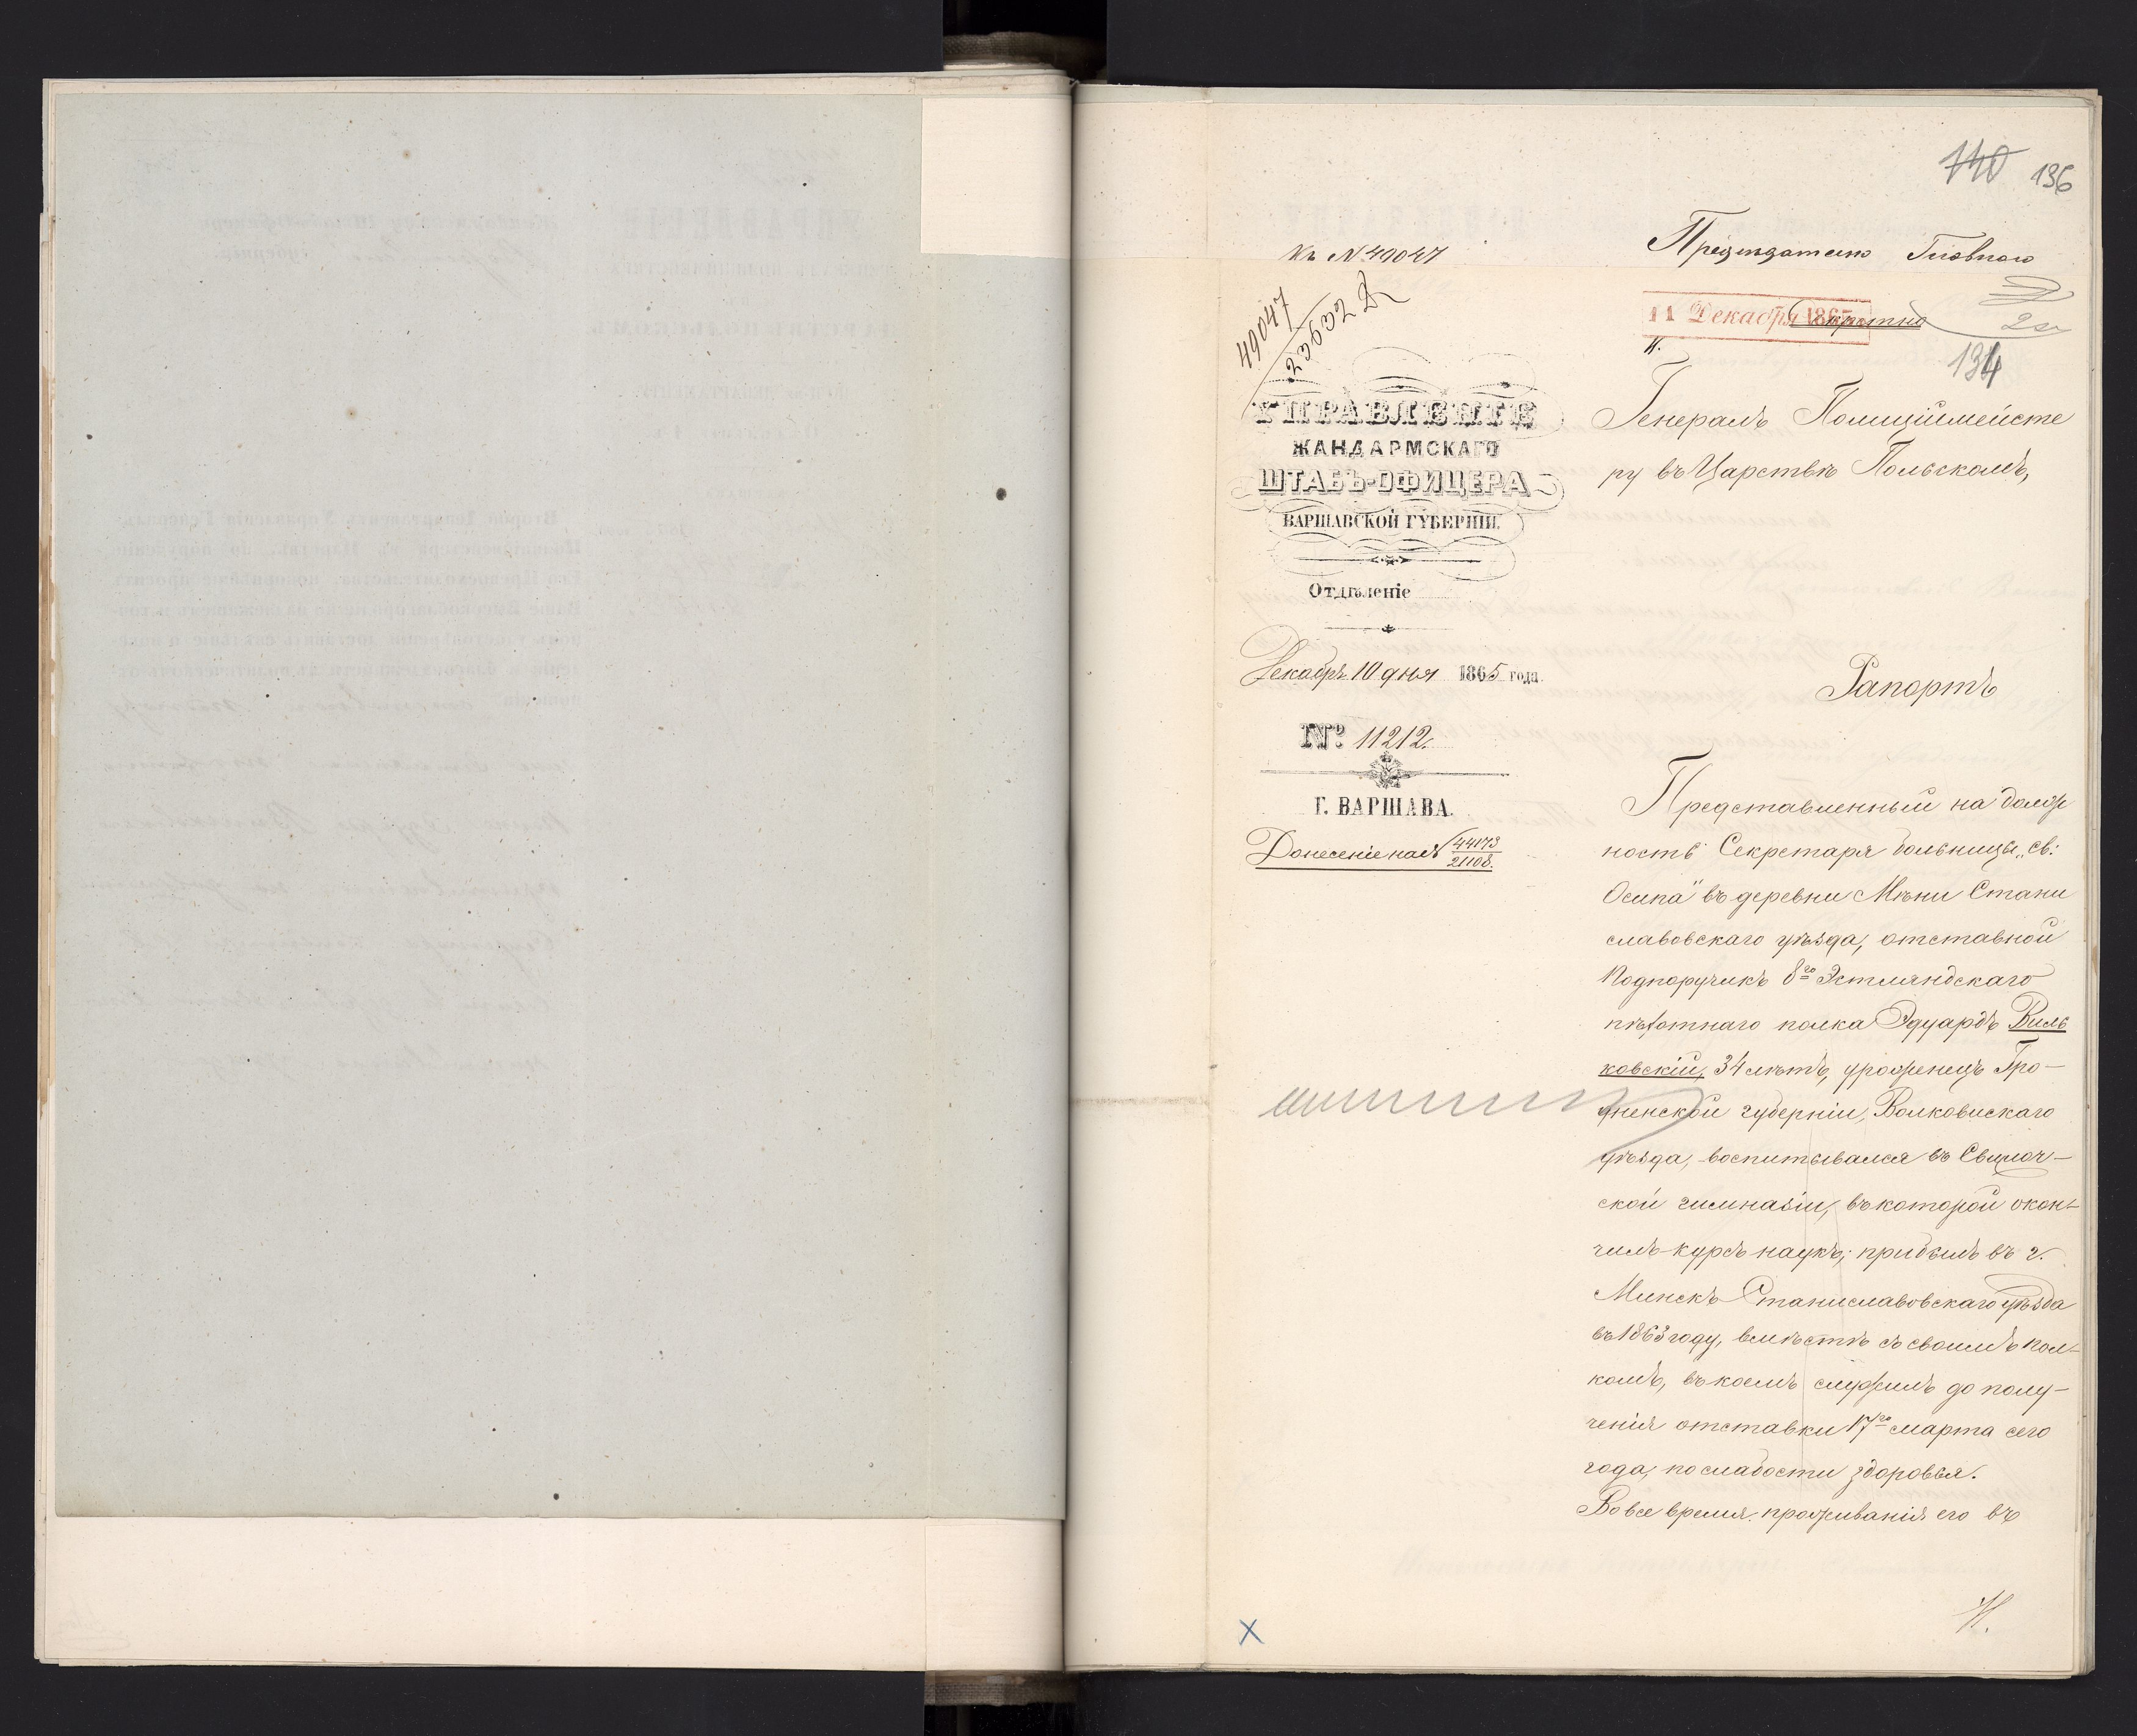 140 136
Къ N 49047
Предсѣдателю Главнаго
49047
23632
11 Декабря 1865
Секретно
134
УПРАВЛЕНІЕ
ЖАНДАРМСКАГО
ШТАБЪ-ОФИЦЕРА
ВАРШАВСКОЙ ГУБЕРНІИ.
Отдѣленіе
Декабря 10 дня 1865 года.
№ 11212.
Г. ВАРШАВА.
Донесеніе на № 44173
21108.
Генералъ Полиціймейсте
ру въ Царствѣ Польскомъ,
Рапортъ
Представленный на долж
ность Секретаря больницы „Св:
Осипа" въ деревни Мѣни Стани
славовскаго уѣзда, отставной
Подпоручикъ 8го Эстляндскаго
пѣхотнаго полка Эдуардъ Виль
ковскій, 34 лѣтъ, уроженецъ Гро-
дненской губерніи, Волковискаго
уѣзда, воспитывался въ Свислоч-
ской гимназіи, въ которой окон-
чилъ курсъ наукъ; прибылъ въ г.
Минскъ Станиславовскаго уѣзда
въ 1863 году, вмѣстѣ съ своимъ пол-
комъ, въ коемъ служилъ до полу-
ченія отставки 17го марта сего
года, по слабости здоровья.
Во все время проживанія его въ